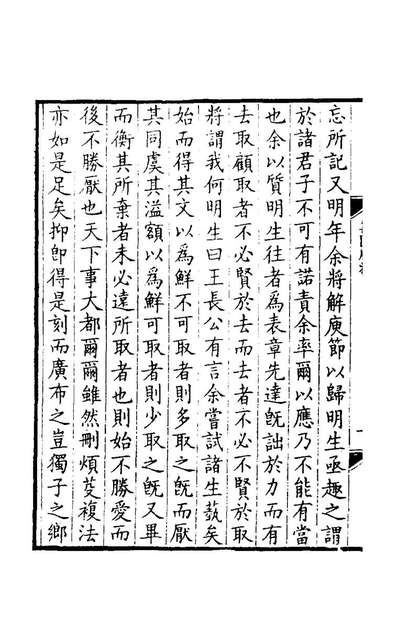 忘所記又明年余將解庾節以歸明生亟趣之謂
於諸君子不可有諾責余率爾以應乃不能有當
也余以質明生往者為表章先達旣詘於力而有
去取顧取者不必賢於去而去者不必不賢於取
將謂我何明生曰王長公有言余嘗試諸生蓺矣
始而得其文以為鮮不可取者則多取之旣而厭
其同虞其溢額以為鮮可取者則少取之旣又畢
而衡其所棄者未必遠所取者也則始不勝愛而
後不勝厭也天下事大都爾爾雖然刪煩芟複法
亦如是足矣抑卽得是刻而廣布之豈獨子之鄉